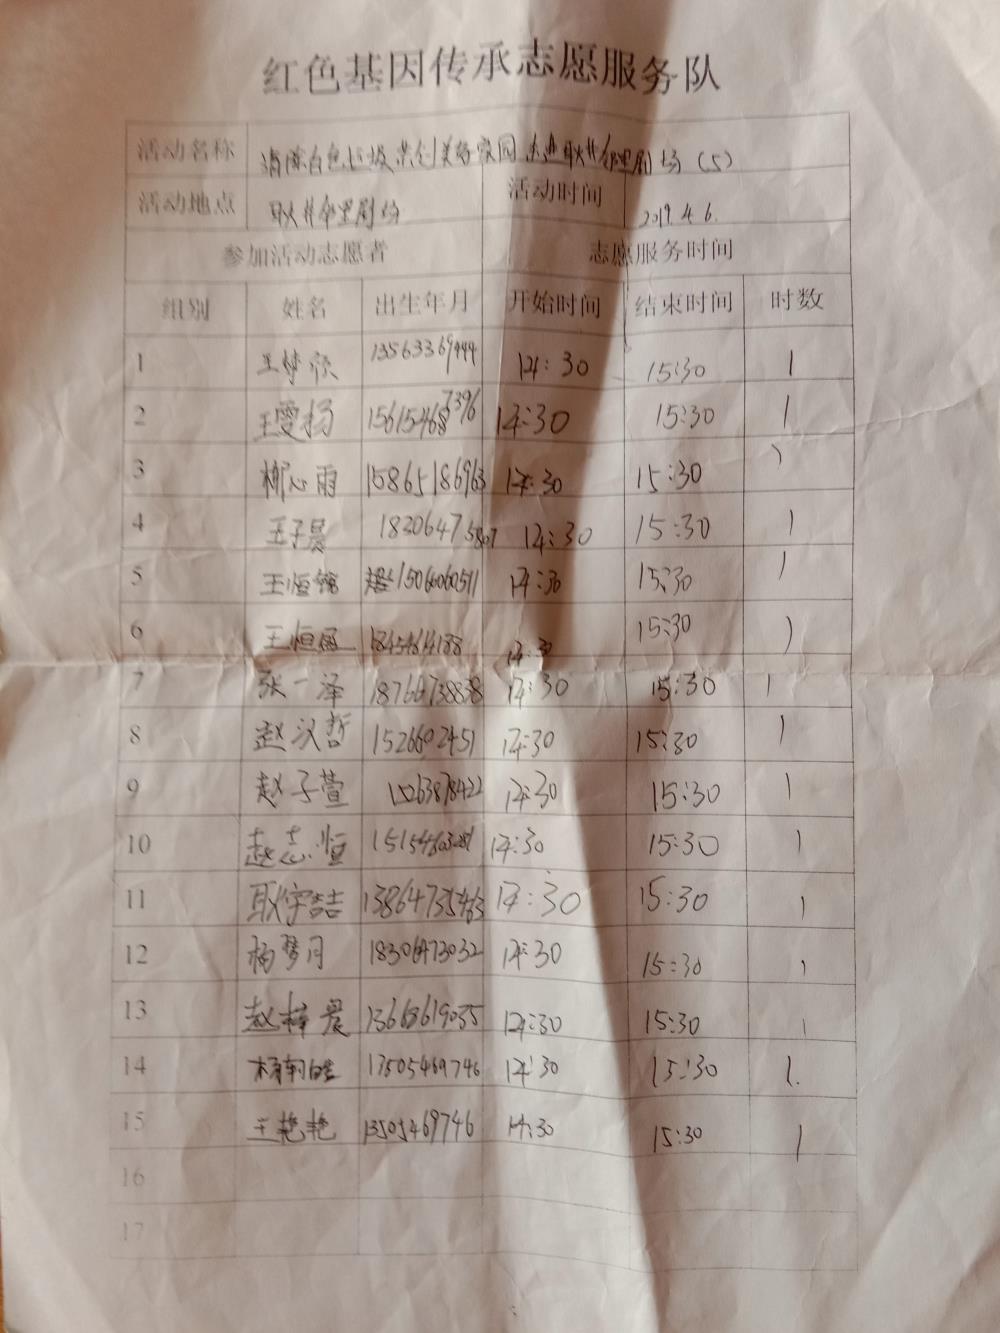 红色基因传承志愿服务队
活动名称 清除白色垃圾 共创美好家园 走进耿井邻里剧场(5)
活动地点 耿井邻里剧场 活动时间 2019.4.6.
参加活动志愿者 志愿服务时间
组别 姓名 出生年月 开始时间 结束时间 时数
1 王梦 13563369444 14:30 15:30 1
2 王雯杨 15615468396 14:30 15:30 1
3 柳心雨 15865186963 14:30 15:30 1
4 王子晨 18206475807 14:30 15:30 1
5 王恒 15066060511 14:30 15:30 1
6 王恒 18454614188 14:30 15:30 1
7 张一泽 18766738838 14:30 15:30 1
8 赵汉哲 1526602451 14:30 15:30 1
9 赵子萱 15263878422 14:30 15:30 1
10 赵志恒 14:30 15:30 1
11 耿宇喆 13864735463 14:30 15:30 1
12 杨梦月 18306473032 14:30 15:30 1
13 赵梓晨 13668619035 14:30 15:30 1
14 杨轩皓 13505469746 14:30 15:30 1.
15 王艳艳 13505469746 14:30 15:30 1
16
17